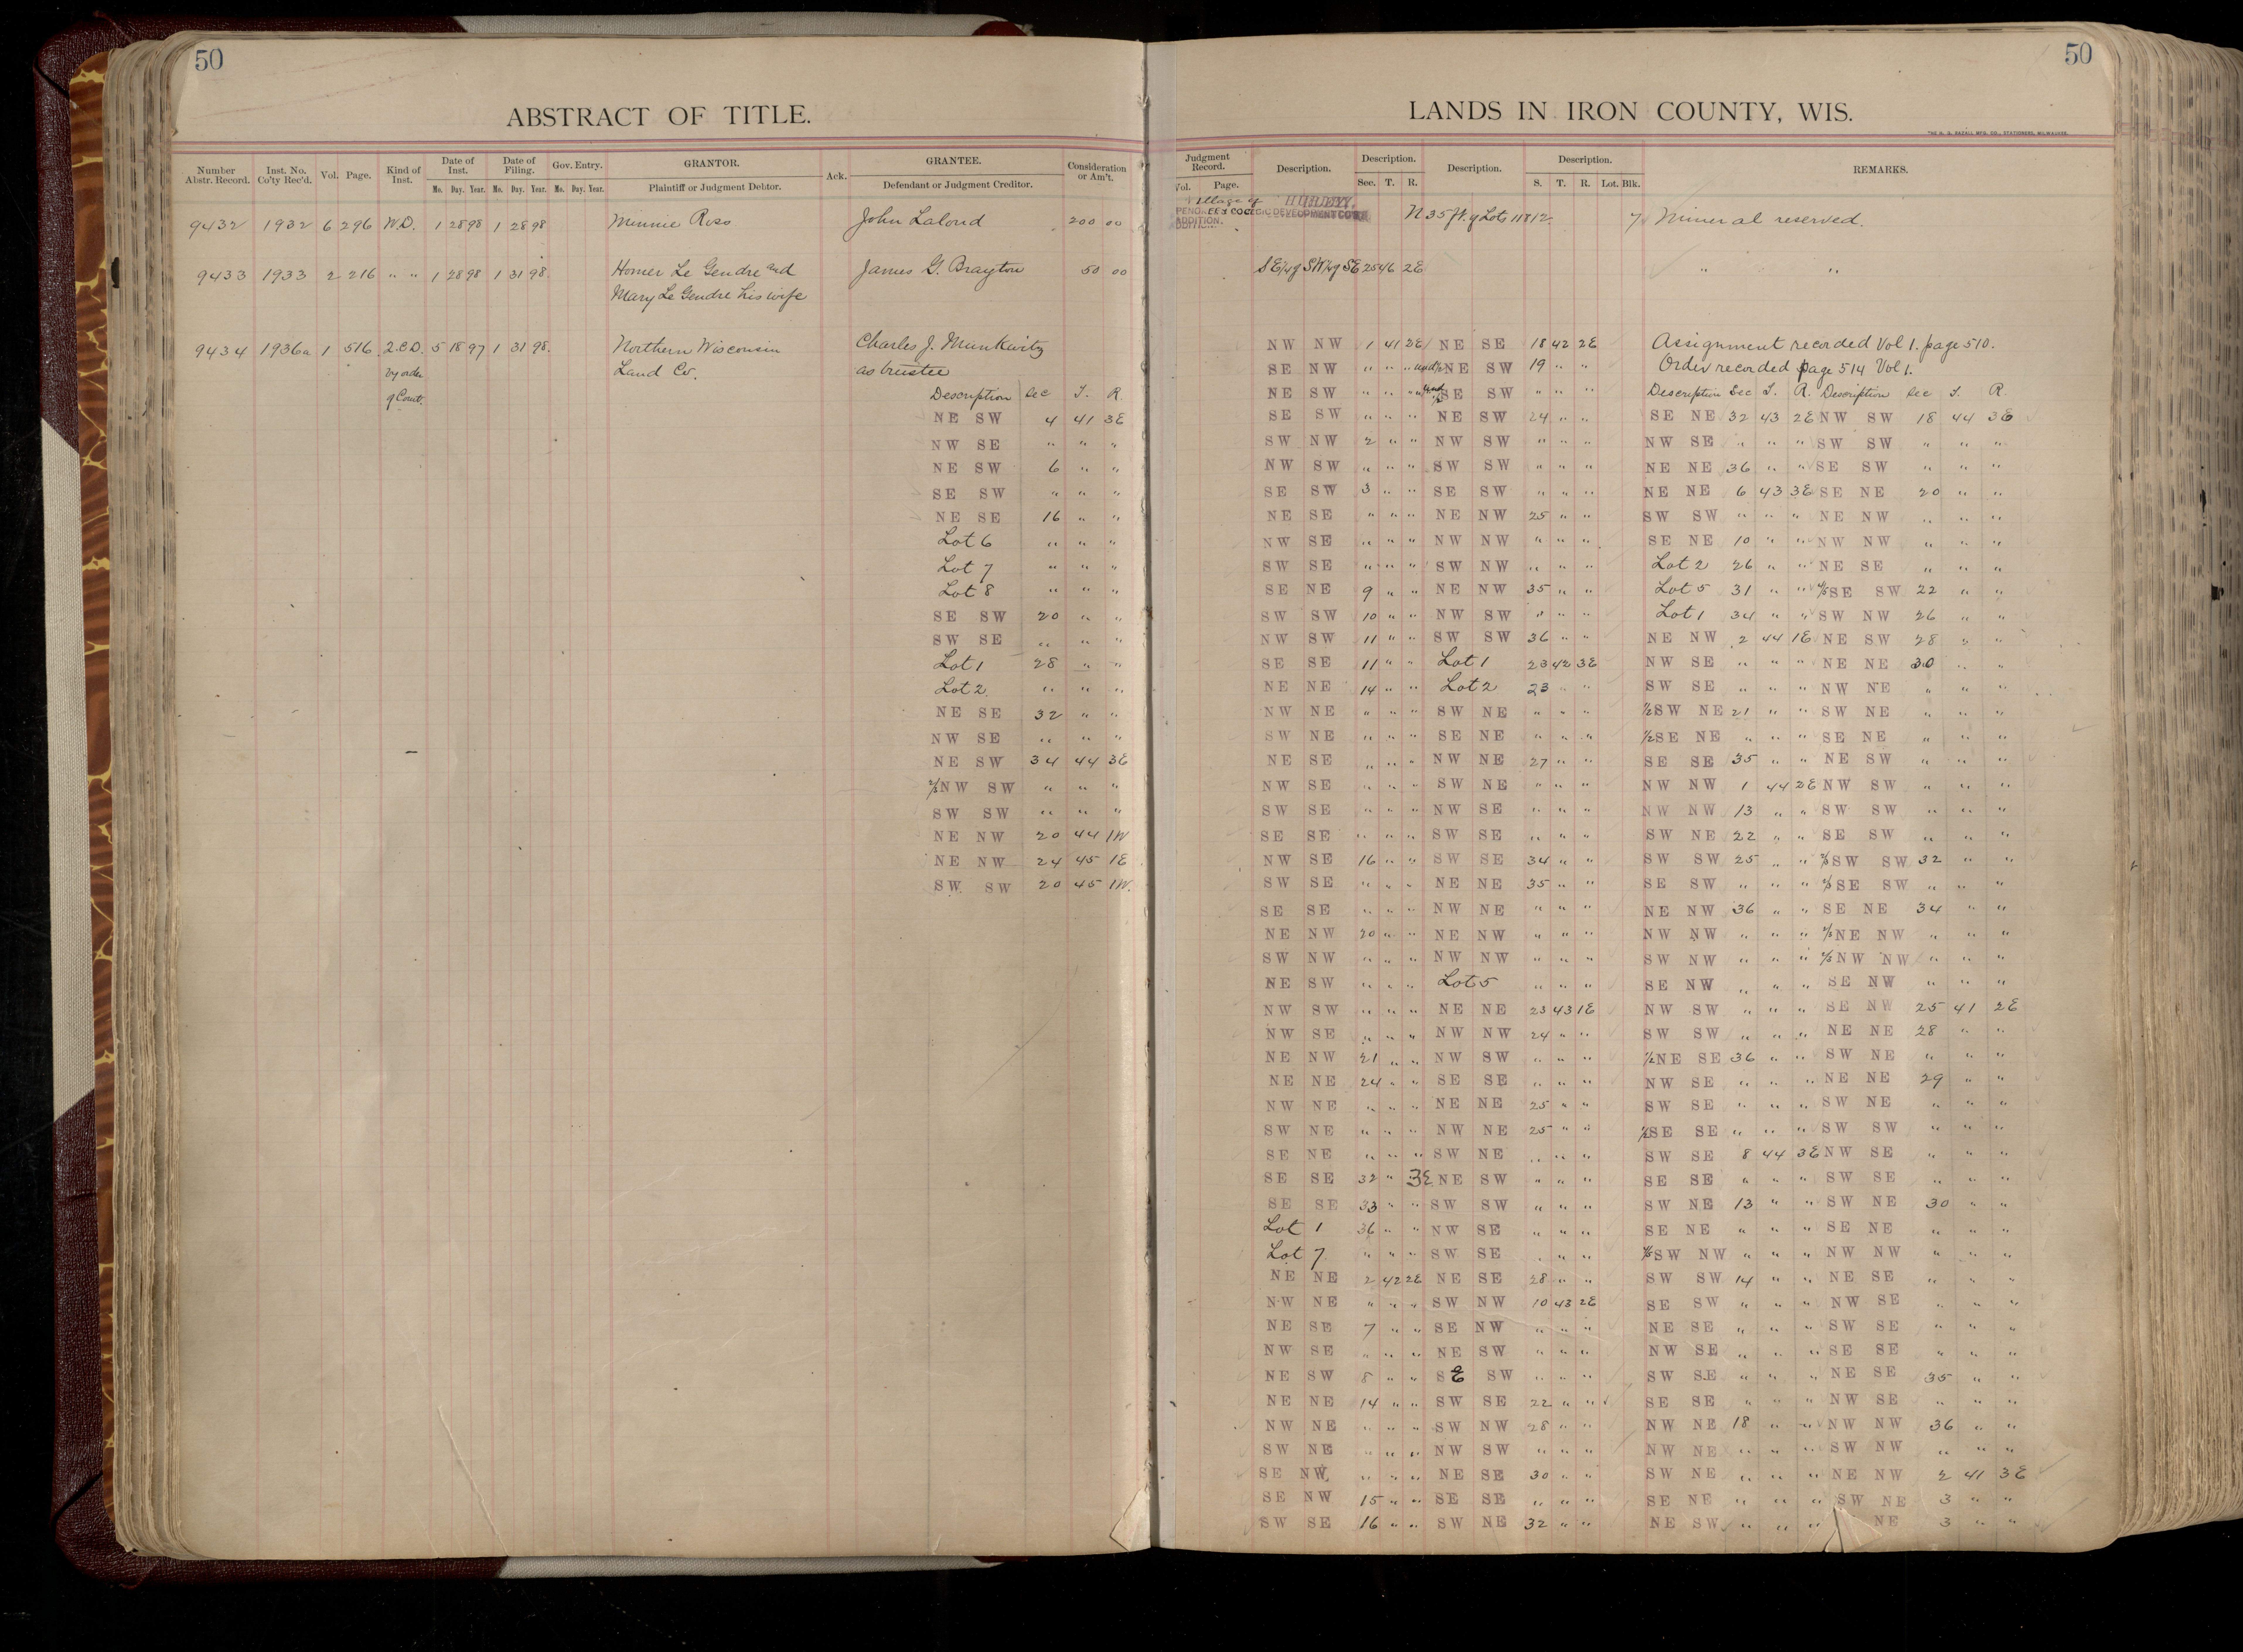 50
ABSTRACT OF TITLE.
Number Abstr. Record. Inst. No. Co'ty Rec'd. Vol. Page. Kind of Inst. Date of Inst. Date of Filing. Gov. Entry. GRANTOR. Ack. GRANTEE. Consideration or Am't.
Mo. Day. Year. Mo. Day. Year. Mo. Day. Year. Plaintiff or Judgment Debtor. Defendant or Judgment Creditor.
9432 1932 6 296 W.D. 1 28 98 1 28 98 Minnie Ross John Lalond 200 00
9433 1933 2 216 " " 1 28 98 1 31 98 Homer Le Gendre and James G. Brayton 50 00
Mary Le Gendre his wife
9434 1936a 1 516 2.C.D. 5 18 97 1 31 98 Northern Wisconsin Charles J. Munkwitz
by order Land Co. as trustee
of Court. Description Sec T. R.
NE SW 4 41 3E
NW SE " " "
NE SW 6 " "
SE SW " " "
NE SE 16 " "
Lot 6 " " "
Lot 7 " " "
Lot 8 " " "
SE SW 20 " "
SW SE " " "
Lot 1 28 " "
Lot 2 " " "
NE SE 32 " "
NW SE " " "
NE SW 34 44 3E
NW SW " " "
SW SW " " "
NE NW 20 44 1W
NE NW 24 45 1E
SW SW 20 45 1W.
50
LANDS IN IRON COUNTY, WIS.
THE H. G. RAZALL MFG. CO., STATIONERS, MILWAUKEE.
Judgment Record. Description. Description. Description. Description. REMARKS.
Vol. Page. Sec. T. R. S. T. R. Lot. Blk.
Village of HURLEY.
ADDITION. N 35 ft. of Lots 11 & 12 7 Mineral reserved.
SE 1/4 of SW 1/4 of SE 25 46 2E " "
NW NW 1 41 2E NE SE 18 42 2E Assignment recorded Vol 1. page 510.
SE NW " " " und 1/2 NE SW 19 " " Order recorded page 514 Vol 1.
NE SW " " " und 1/2 SE SW " " " Description Sec T. R. Description Sec T. R.
SE SW " " " NE SW 24 " " SE NE 32 43 2E NW SW 18 44 3E
SW NW 2 " " NW SW " " " NW SE " " " SW SW " " "
NW SW " " " SW SW " " " NE NE 36 " " SE SW " " "
SE SW 3 " " SE SW " " " NE NE 6 43 3E SE NE 20 " "
NE SE " " " NE NW 25 " " SW SW " " " NE NW " " "
NW SE " " " NW NW " " " SE NE 10 " " NW NW " " "
SW SE " " " SW NW " " " Lot 2 26 " " NE SE " " "
SE NE 9 " " NE NW 35 " " Lot 5 31 " " SE SW 22 " "
SW SW 10 " " NW SW " " " Lot 1 34 " " SW NW 26 " "
NW SW 11 " " SW SW 36 " " NE NW 2 44 1E NE SW 28 " "
SE SE 11 " " Lot 1 23 42 3E NW SE " " " NE NE 30 " "
NE NE 14 " " Lot 2 23 " " SW SE " " " NW NE " " "
NW NE " " " SW NE " " " 1/2 SW NE 21 " " SW NE " " "
SW NE " " " SE NE " " " 1/2 SE NE " " " SE NE " " "
NE SE " " " NW NE 27 " " SE SE 35 " " NE SW " " "
NW SE " " " SW NE " " " NW NW 1 44 2E NW SW " " "
SW SE " " " NW SE " " " NW NW 13 " " SW SW " " "
SE SE " " " SW SE " " " SW NE 22 " " SE SW " " "
NW SE 16 " " SW SE 34 " " SW SW 25 " " SW SW 32 " "
SW SE " " " NE NE 35 " " SE SW " " " SE SW " " "
SE SE " " " NW NE " " " NE NW 36 " " SE NE 34 " "
NE NW 20 " " NE NW " " " NW NW " " " NE NW " " "
SW NW " " " NW NW " " " SW NW " " " NW NW " " "
NE SW " " " Lot 5 " " " SE NW " " " SE NW " " "
NW SW " " " NE NE 23 43 1E NW SW " " " SE NW 25 41 2E
NW SE " " " NW NW 24 " " SW SW " " " NE NE 28 " "
NE NW 21 " " NW SW " " " 1/2 NE SE 36 " " SW NE " " "
NE NE 24 " " SE SE " " " NW SE " " " NE NE 29 " "
NW NE " " " NE NE 25 " " SW SE " " " SW NE " " "
SW NE " " " NW NE 25 " " 1/2 SE SE " " " SW SW " " "
SE NE " " " SW NE " " " SW SE 8 44 3E NW SE " " "
SE SE 32 " 3E NE SW " " " SE SE " " " SW SE " " "
SE SE 33 " " SW SW " " " SW NE 13 " " SW NE 30 " "
Lot 1 36 " " NW SE " " " SE NE " " " SE NE " " "
Lot 7 " " " SW SE " " " SW NW " " " NW NW " " "
NE NE 2 42 2E NE SE 28 " " SW SW 14 " " NE SE " " "
NW NE " " " SW NW 10 43 2E SE SW " " " NW SE " " "
NE SE 7 " " SE NW " " " NE SE " " " SW SE " " "
NW SE " " " NE SW " " " NW SE " " " SE SE " " "
NE SW 8 " " SE SW " " " SW SE " " " NE SE 35 " "
NE NE 14 " " SW SE 22 " " SE SE " " " NW SE " " "
NW NE " " " SW NW 28 " " NW NE 18 " " NW NW 36 " "
SW NE " " " NW SW " " " NW NE " " " SW NW " " "
SE NW " " " NE SE 30 " " SW NE " " " NE NW 2 41 3E
SE NW 15 " " SE SE " " " SE NE " " " SW NE 3 " "
SW SE 16 " " SW NE 32 " " NE SW " " " NE 3 " "